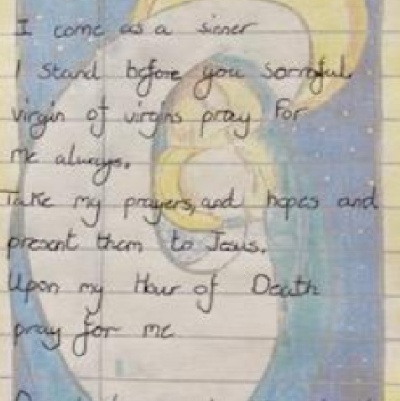 I come as a sinner
I stand before you sorroful
virgin of virgins pray for
me always.
Take my prayers, and hopes and
present them to Jesus.
Upon my Hour of Death
pray for me